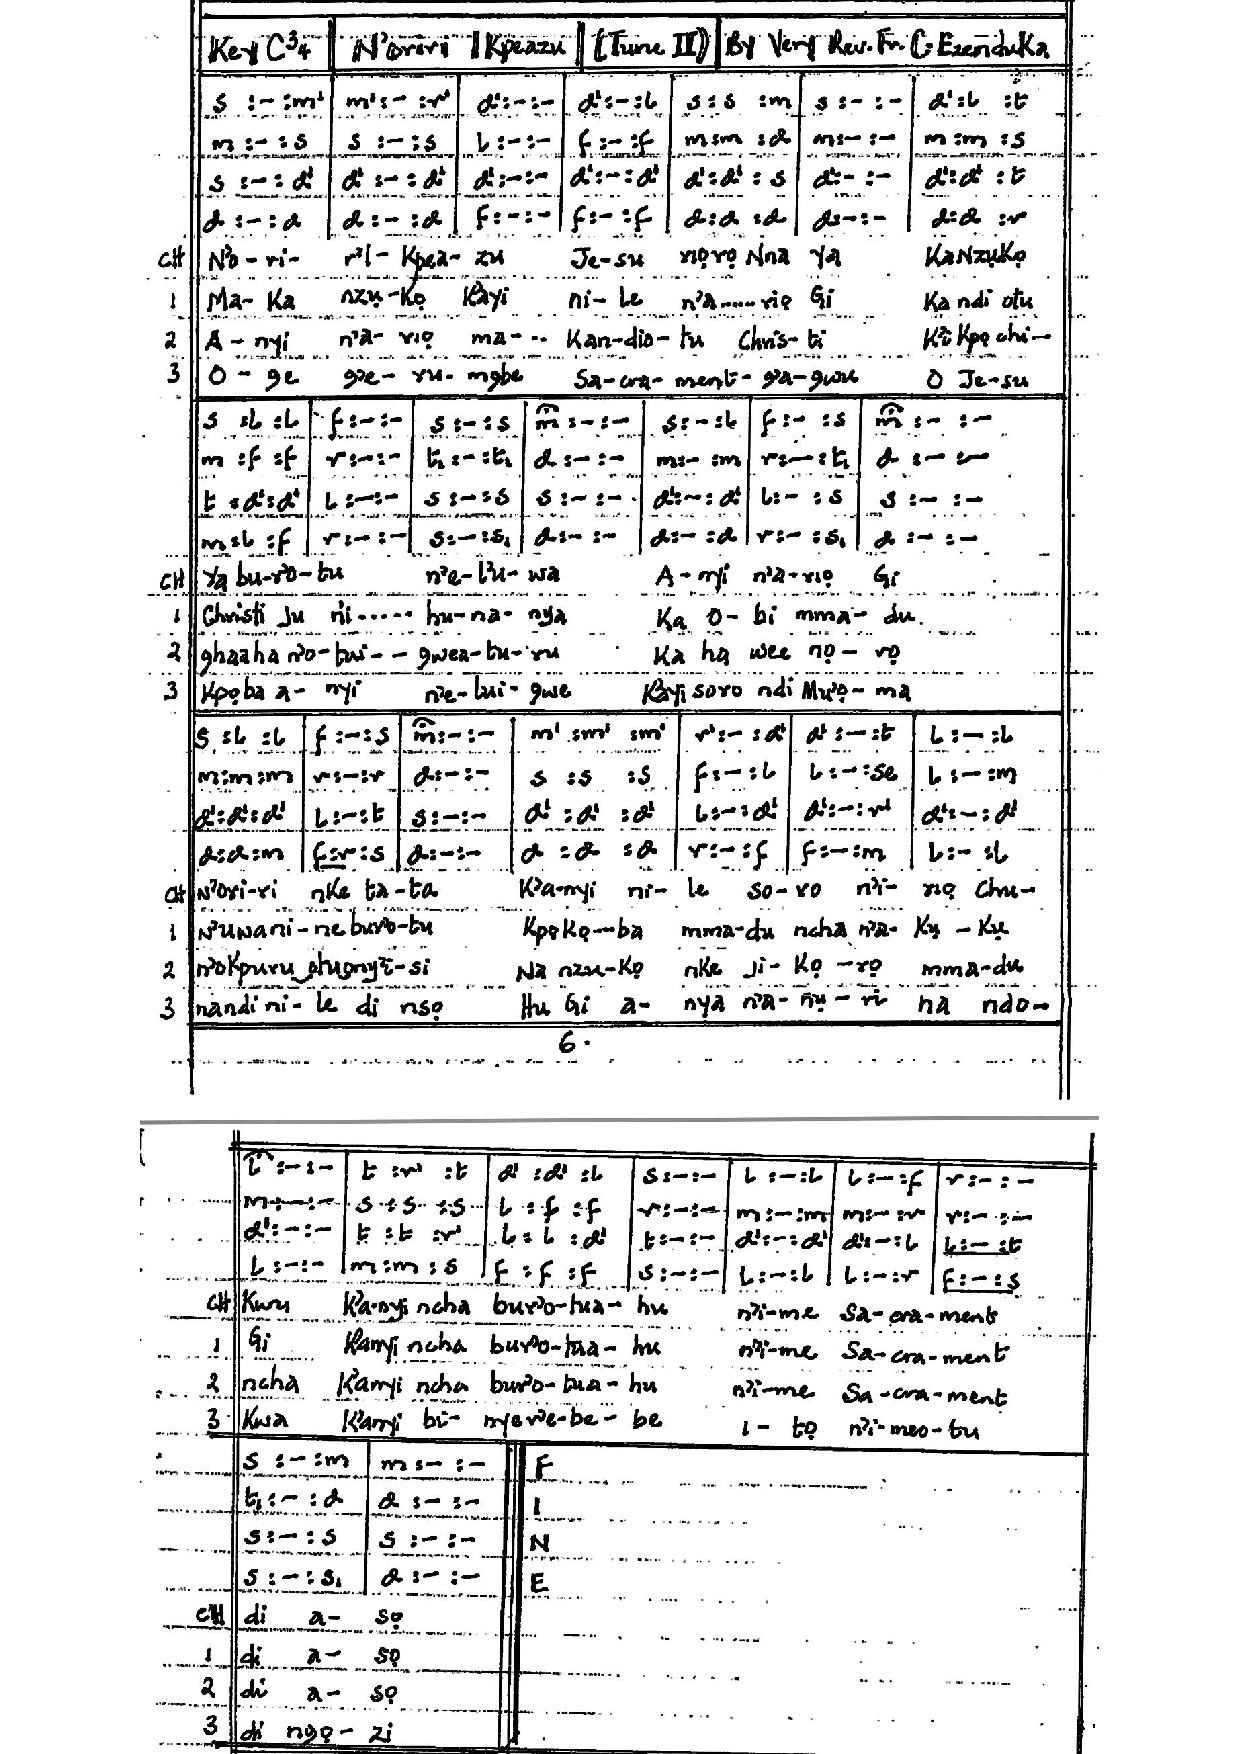 Key C 3/4 | N'oriri | Kpeazu | (Tune II) | By Very Rev. Fr. C. Ezenduka
s :- :m' | m' :- :r' | d' :- :- | d' :- :l | s :s :m | s :- :- | d' :l :t
m :- :s | s :- :s | l :- :- | f :- :f | m :m :d | m :- :- | m :m :s
s :- :d' | d' :- :d' | d' :- :- | d' :- :d' | d' :d' :s | d' :- :- | d' :d' :t
d :- :d | d :- :d | f :- :- | f :- :f | d :d :d | d :- :- | d :d :r
CH N'o - ri - r'i - Kpea - zu Je - su nọrọ Nna ya KaNzụkọ
1 Ma - Ka nzụ - kọ K'ayi ni - le n'a..... rịọ Gi Ka ndi otu
2 A - nyi n'a - rịọ ma - .. Kan - dio - tu Chris - ti K'i Kpọ chi -
3 O - ge g'e - ru - mgbe Sa - cra - ment - g'a - gwu O Je - su
s :l :l | f :- :- | s :- :s | m :- :- | s :- :l | f :- :s | m :- :-
m :f :f | r :- :- | t₁ :- :t₁ | d :- :- | m :- :m | r :- :t₁ | d :- :-
t :d' :d' | l :- :- | s :- :s | s :- :- | d' :- :d' | l :- :s | s :- :-
m :l :f | r :- :- | s :- :s₁ | d :- :- | d :- :d | r :- :s₁ | d :- :-
CH Ya bu - r'o - tu n'e - l'u - wa A - nyi n'a - rịọ Gi
1 Christi Ju n'i ..... hu - na - nya Ka O - bi mma - du.
2 ghaaha n'o - tui - - gwea - tu - ru Ka ha wee nọ - rọ
3 Kpọba a - nyi n'e - lui - gwe K'ayi soro ndi Mụ'ọ - ma
s :l :l | f :- :s | m :- :- | m' :m' :m' | r' :- :d' | d' :- :t | l :- :l
m :m :m | r :- :r | d :- :- | s :s :s | f :- :l | l :- :se | l :- :m
d' :d' :d' | l :- :t | s :- :- | d' :d' :d' | l :- :d' | d' :- :r' | d' :- :d'
d :d :m | f :r :s | d :- :- | d :d :d | r :- :f | f :- :m | l :- :l
CH N'ori - ri nke ta - ta K'a - nyi ni - le so - ro n'i - rịọ Chu -
1 N'uwa ni - ne bur'o - tu Kpọ Kọ - ba mma - du ncha n'a - Kụ - Kụ
2 Na nzu - Kọ nke Ji - Kọ - rọ mma - du
3 nandi ni - le di nsọ Hu Gi a - nya n'a - ṅụ - ri ha ndo -
6.
l :- :- | t :r' :t | d' :d' :l | s :- :- | l :- :l | l :- :f | r :- :-
m :- :- | s :s :s | l :f :f | r :- :- | m :- :m | m :- :r | r :- :-
d' :- :- | t :t :r' | l :l :d' | t :- :- | d' :- :d' | d' :- :l | l :- :t
l :- :- | m :m :s | f :f :f | s :- :- | l :- :l | l :- :r | f :- :s
CH Kwu K'a-nyi ncha bur'o - tua - hu n'i - me Sa - cra - ment
1 Gi K'anyi ncha bur'o - tua - hu n'i - me Sa - cra - ment
2 ncha K'anyi ncha bur'o - tua - hu n'i - me Sa - cra - ment
3 Kwa K'anyi bi - nyere'e - be - be i - tọ n'i - meo - tu
s :- :m | m :- :- F
t₁ :- :d | d :- :- I
s :- :s | s :- :- N
s :- :s₁ | d :- :- E
CH di a - sọ
1 di a - sọ
2 di a - sọ
3 di ngọ - zi